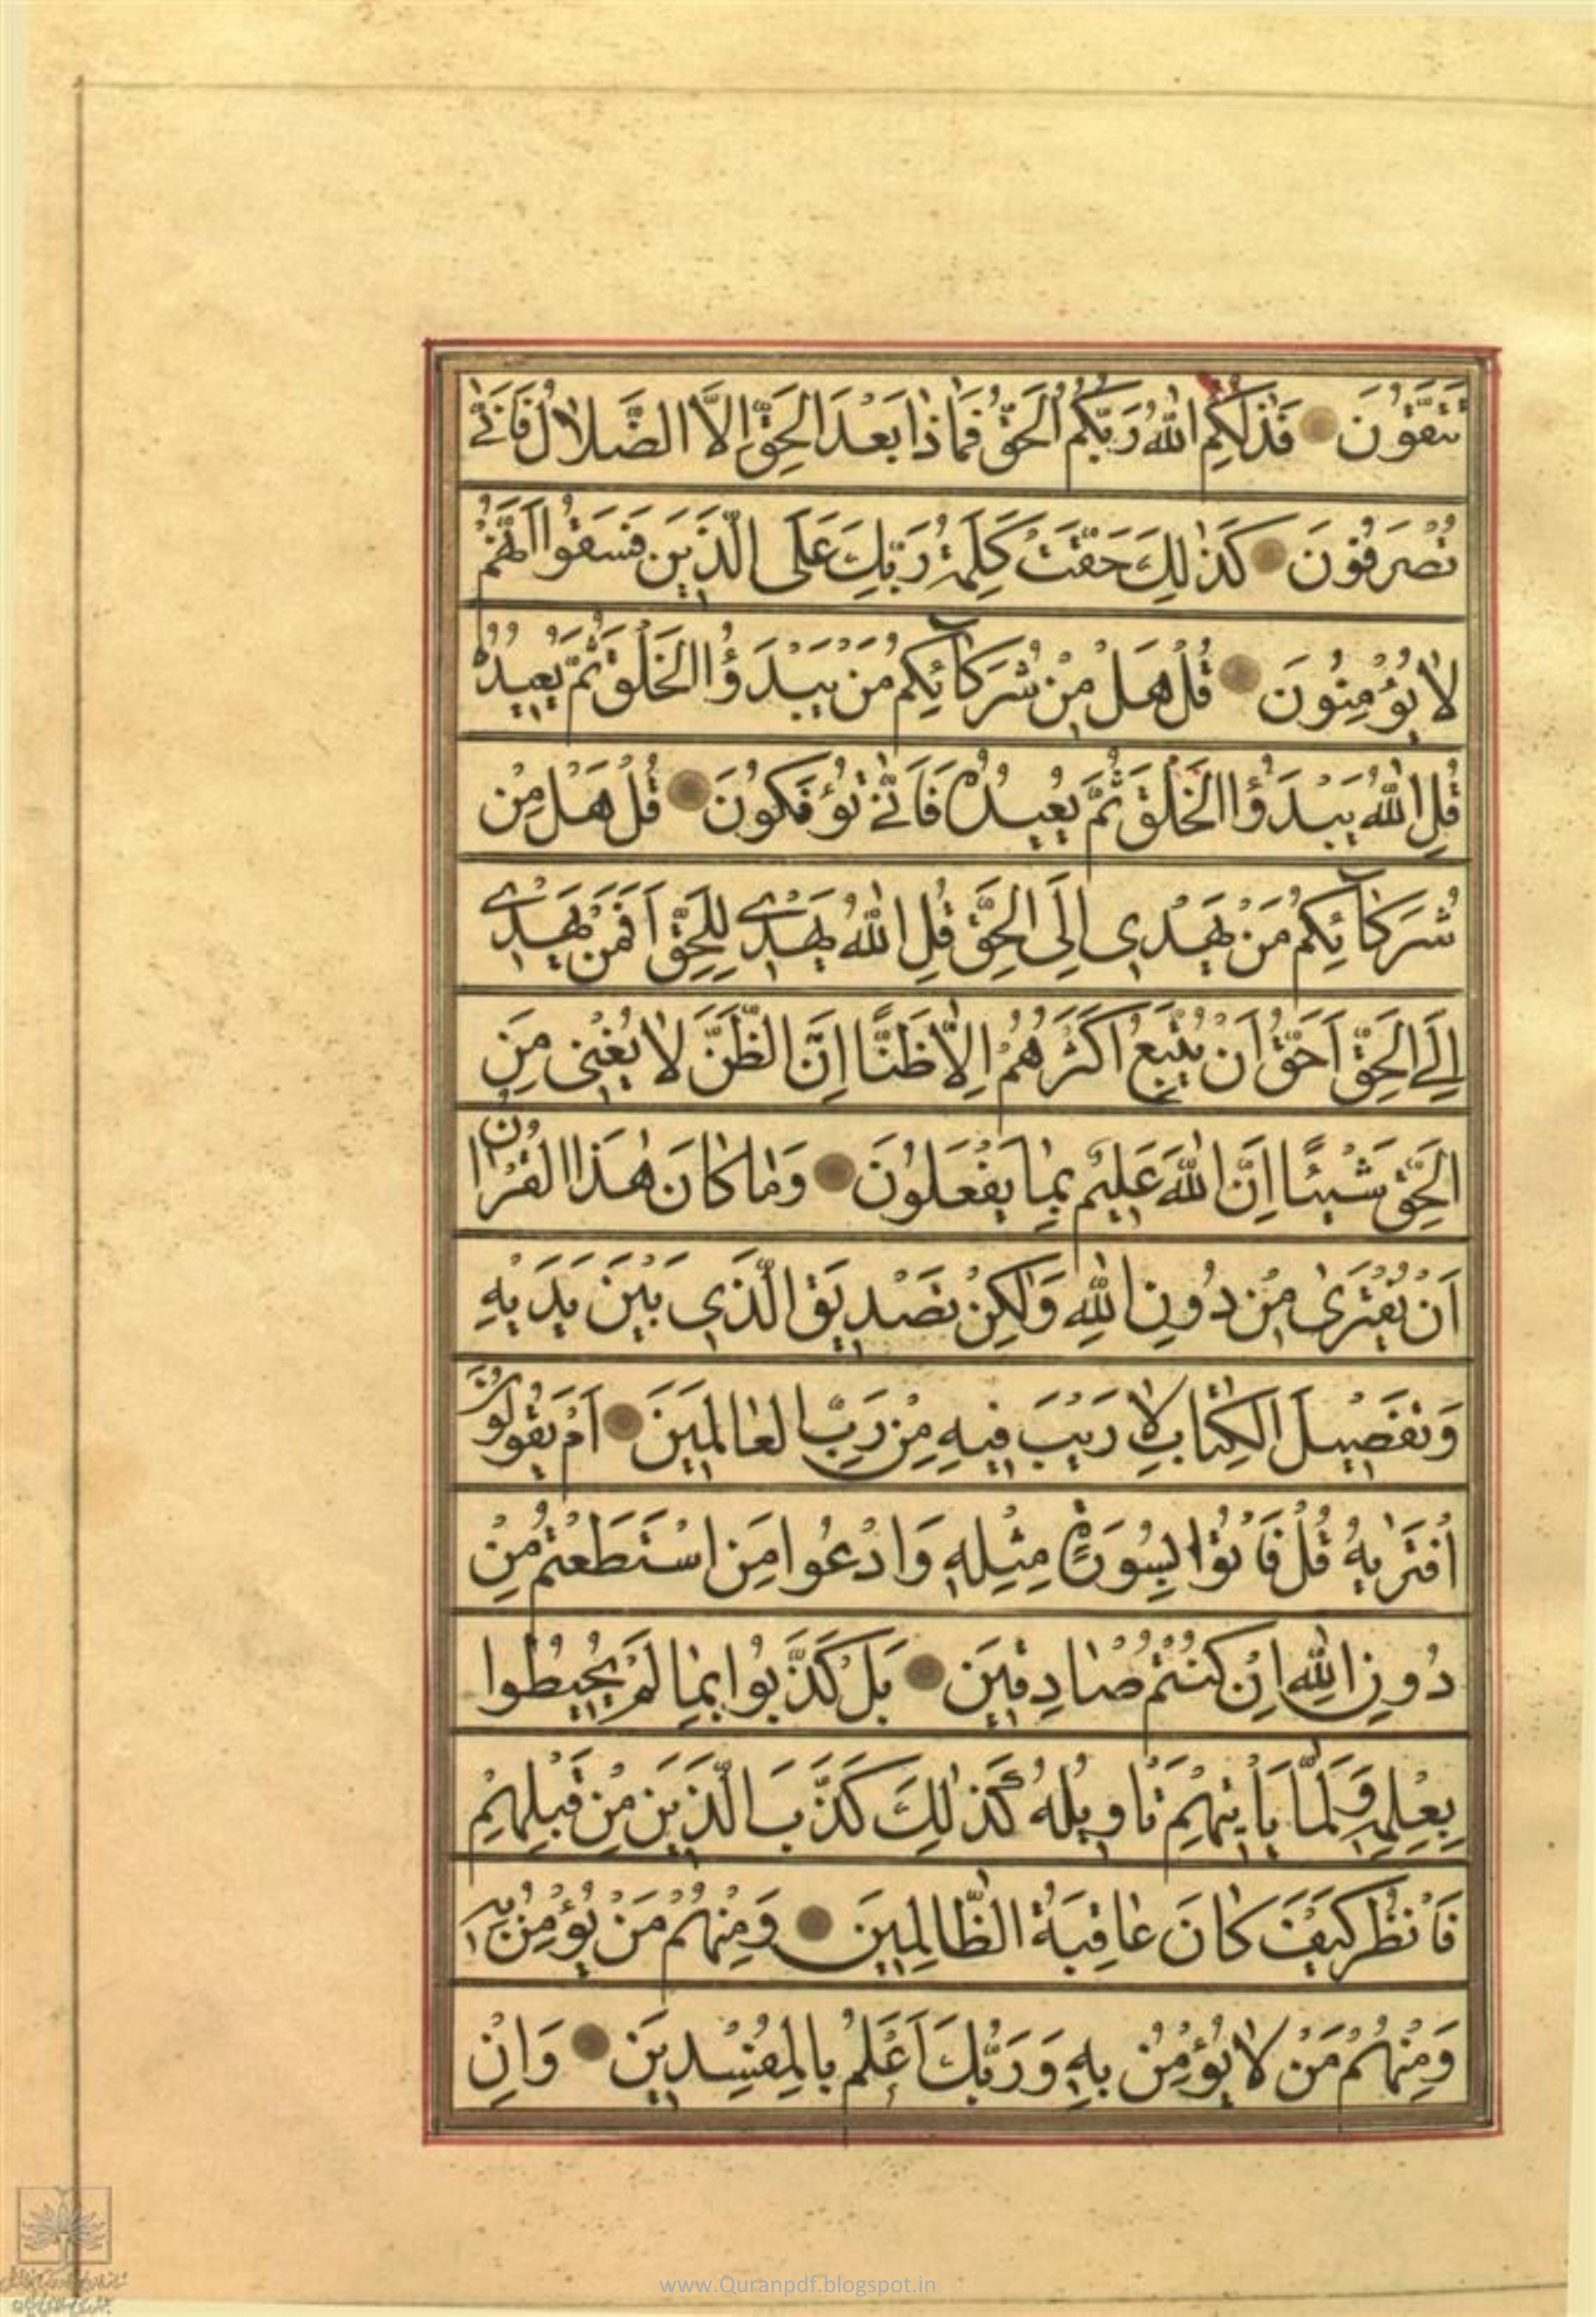 تَتَّقُونَ فَذٰلِكُمُ اللّٰهُ رَبُّكُمُ الْحَقُّ فَمَاذٰا بَعْدَ الْحَقِّ اِلَّا الضَّلَالُ فَاَنّٰى
تُصْرَفُونَ كَذٰلِكَ حَقَّتْ كَلِمَةُ رَبِّكَ عَلَى الَّذِينَ فَسَقُوا اَنَّهُمْ
لٰا يُؤْمِنُونَ قُلْ هَلْ مِنْ شُرَكٰائِكُمْ مَنْ يَبْدَؤُا الْخَلْقَ ثُمَّ يُعِيدُهُ
قُلِ اللّٰهُ يَبْدَؤُا الْخَلْقَ ثُمَّ يُعِيدُهُ فَاَنّٰى تُؤْفَكُونَ قُلْ هَلْ مِنْ
شُرَكٰائِكُمْ مَنْ يَهْدِى اِلَى الْحَقِّ قُلِ اللّٰهُ يَهْدِى لِلْحَقِّ اَفَمَنْ يَهْدِى
اِلَى الْحَقِّ اَحَقُّ اَنْ يُتَّبَعَ اَكْثَرُهُمْ اِلّٰا ظَنًّا اِنَّ الظَّنَّ لٰا يُغْنِى مِنَ
الْحَقِّ شَيْئًا اِنَّ اللّٰهَ عَلِيمٌ بِمٰا يَفْعَلُونَ وَمٰا كٰانَ هٰذَا الْقُرْاٰنُ
اَنْ يُفْتَرٰى مِنْ دُونِ اللّٰهِ وَلٰكِنْ تَصْدِيقَ الَّذِى بَيْنَ يَدَيْهِ
وَتَفْصِيلَ الْكِتٰابِ لٰا رَيْبَ فِيهِ مِنْ رَبِّ الْعٰالَمِينَ اَمْ يَقُولُونَ
افْتَرٰيهُ قُلْ فَاْتُوْا بِسُورَةٍ مِثْلِهِ وَادْعُوا مَنِ اسْتَطَعْتُمْ مِنْ
دُونِ اللّٰهِ اِنْ كُنْتُمْ صٰادِقِينَ بَلْ كَذَّبُوا بِمٰا لَمْ يُحِيطُوا
بِعِلْمِهِ وَلَمّٰا يَاْتِهِمْ تَاْوِيلُهُ كَذٰلِكَ كَذَّبَ الَّذِينَ مِنْ قَبْلِهِمْ
فَانْظُرْ كَيْفَ كٰانَ عٰاقِبَةُ الظّٰالِمِينَ وَمِنْهُمْ مَنْ يُؤْمِنُ بِهِ
وَمِنْهُمْ مَنْ لٰا يُؤْمِنُ بِهِ وَرَبُّكَ اَعْلَمُ بِالْمُفْسِدِينَ وَاِنْ
www.Quranpdf.blogspot.in